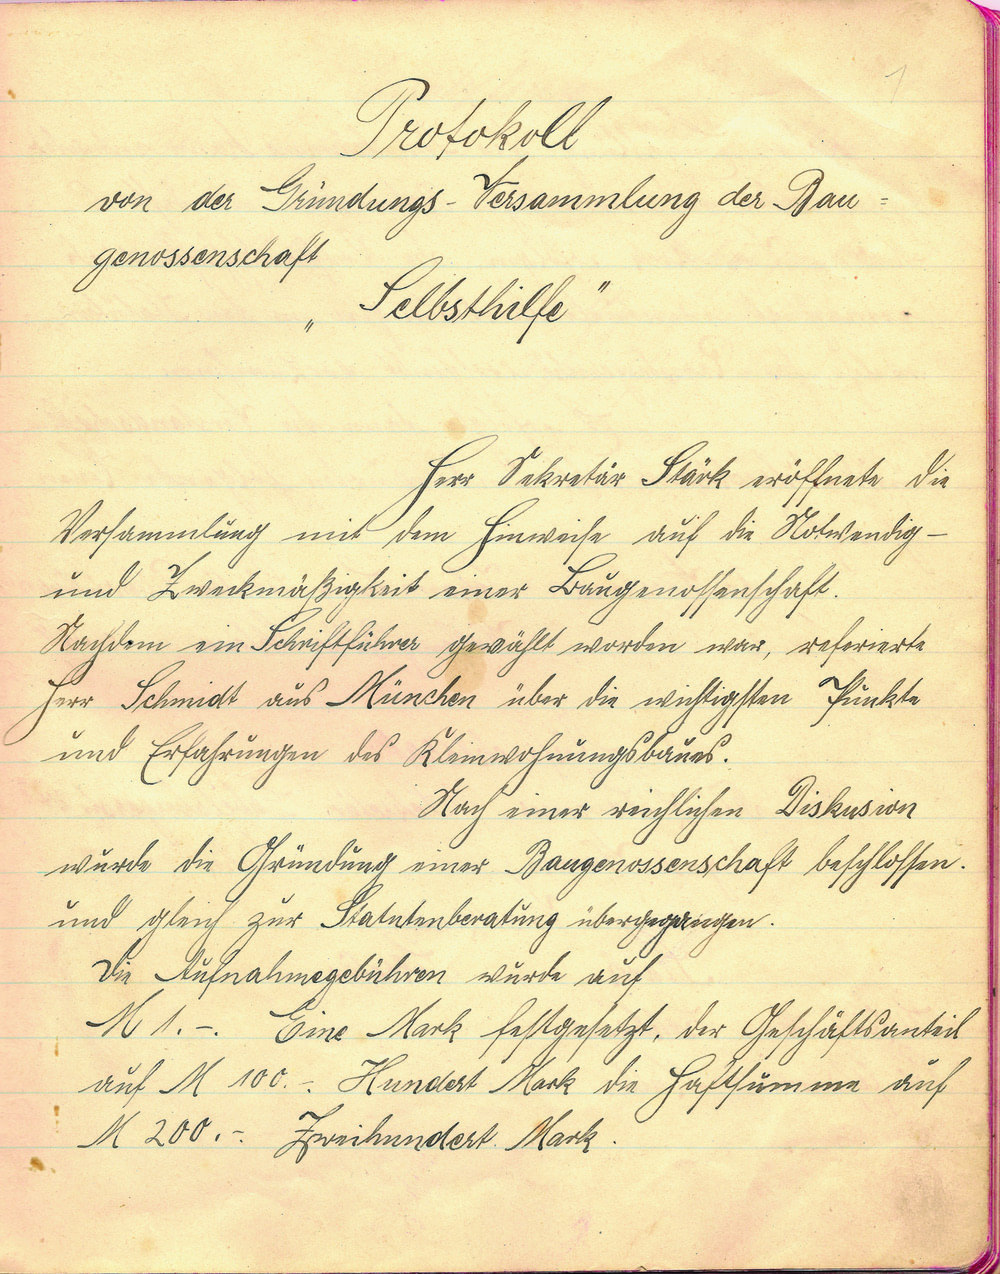 1
Protokoll
von der Gründungs-Versammlung der Bau=
genossenschaft
„Selbsthilfe"
Herr Sekretär Stärk eröffnete die
Versammlung mit dem Hinweise auf die Notwendig-
und Zweckmäßigkeit einer Baugenossenschaft.
Nachdem ein Schriftführer gewählt worden war, referierte
Herr Schmidt aus München über die wichtigsten Punkte
und Erfahrungen des Kleinwohnungsbaues.
Nach einer reichlichen Diskusion
wurde die Gründung einer Baugenossenschaft beschlossen.
und gleich zur Statutenberatung übergegangen.
Die Aufnahmegebühren wurde auf
M 1.-. Eine Mark festgesetzt, der Geschäftsanteil
auf M 100.-. Hundert Mark die Haftsumme auf
M 200.-. Zweihundert Mark.